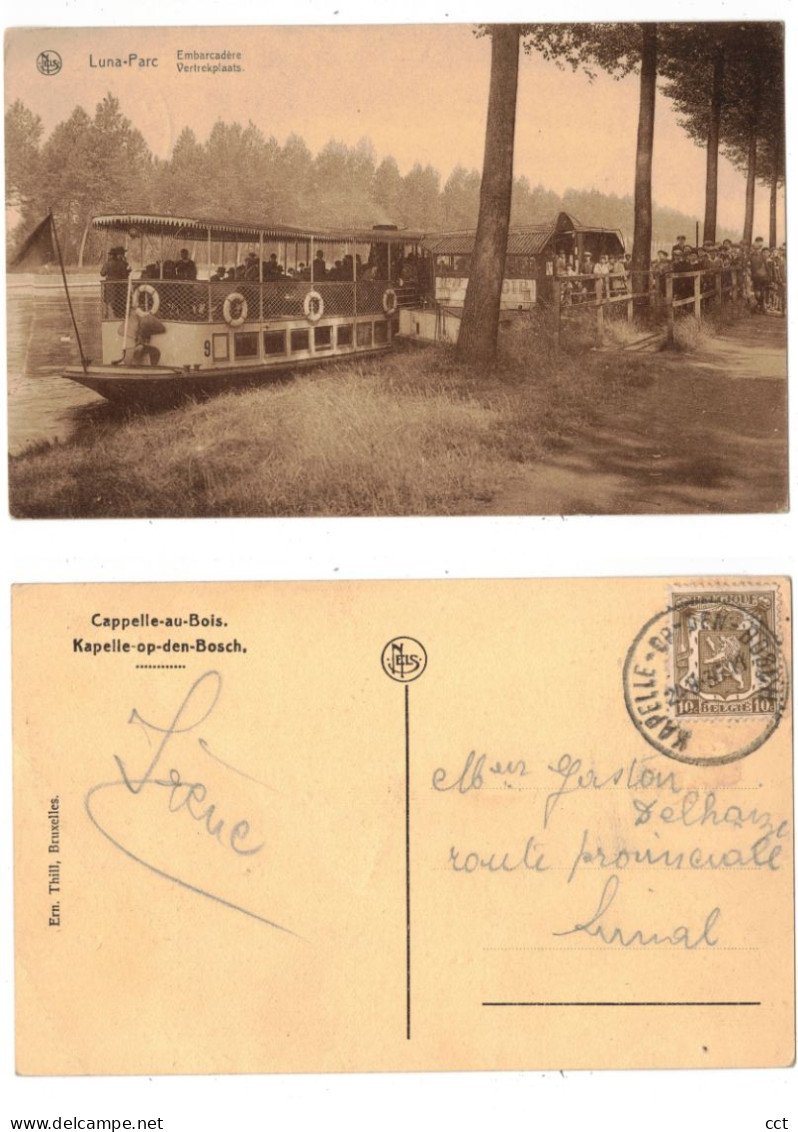 NELS
Luna-Parc
Embarcadère
Vertrekplaats.
9
Cappelle-au-Bois.
Kapelle-op-den-Bosch.
NELS
BELGIQUE
10c BELGIË 10c
KAPELLE-OP-DEN-BOSCH
Irène
Meur Gaston
Delhaize
route provinciale
Limal
Ern. Thill, Bruxelles.
delcampe.net
cct